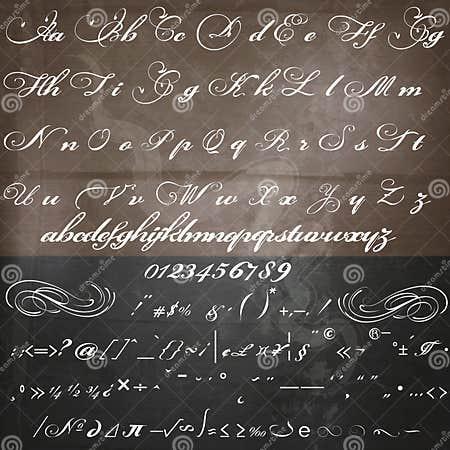 Aa Bb Cc Dd Ee Ff Gg
Hh Ii Jj Kk Ll Mm
Nn Oo Pp Qq Rr Ss Tt
Uu Vv Ww Xx Yy Zz
abcdefghijklmnopqrstuvwxyz
0123456789
!"#$% &'()*+,-./
:;<=>?@[]^_`{}~¡¢£¤¥¦§¨©«¬®¯°±
»¼½¾¿×÷
/№∂∆π−√∫≈≤≥‰
dreamstime